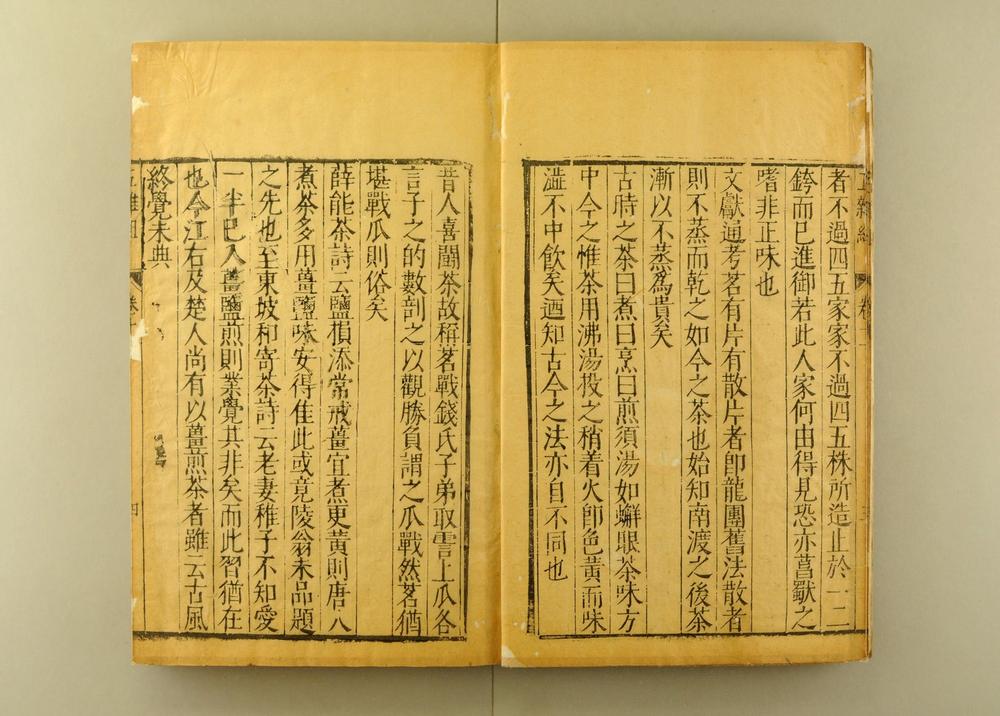 者不過四五家家不過四五株所造止於一二
銙而已進御若此人家何由得見恐亦菖歜之
嗜非正味也
文獻通考茗有片有散片者即龍團舊法散者
則不蒸而乾之如今之茶也始知南渡之後茶
漸以不蒸爲貴矣
古時之茶曰煮曰烹曰煎須湯如蠏眼茶味方
中今之惟茶用沸湯投之稍着火即色黃而味
澁不中飲矣廼知古今之法亦自不同也
昔人喜鬭茶故稱茗戰錢氏子弟取霅上瓜各
言子之的數剖之以觀勝負謂之瓜戰然茗猶
堪戰瓜則俗矣
薛能茶詩云鹽損添常戒薑宜煮更黃則唐人
煮茶多用薑鹽味安得佳此或竟陵翁未品題
之先也至東坡和寄茶詩云老妻稚子不知愛
一半已入薑鹽煎則業覺其非矣而此習猶在
也今江右及楚人尚有以薑煎茶者雖云古風
終覺未典